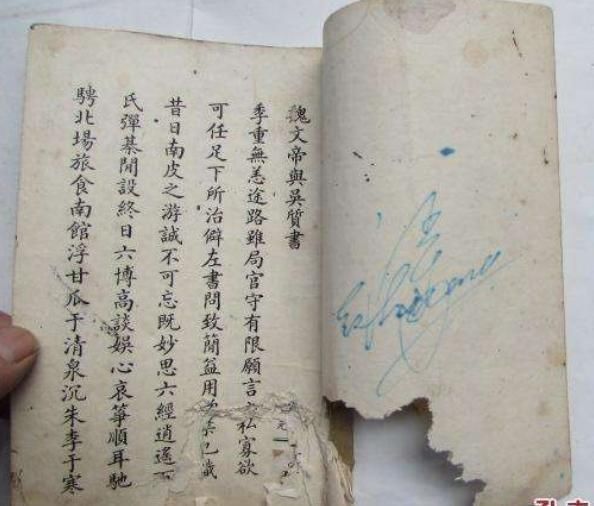 魏文帝與吳質書
季重無恙途路雖局官守有限願言私寡欲
可任足下所治僻左書問致簡益用
昔日南皮之游誠不可忘既妙思六經逍遙
氏彈棊閒設終日六博高談娛心哀箏順耳馳
騁北場旅食南館浮甘瓜于清泉沉朱李于寒